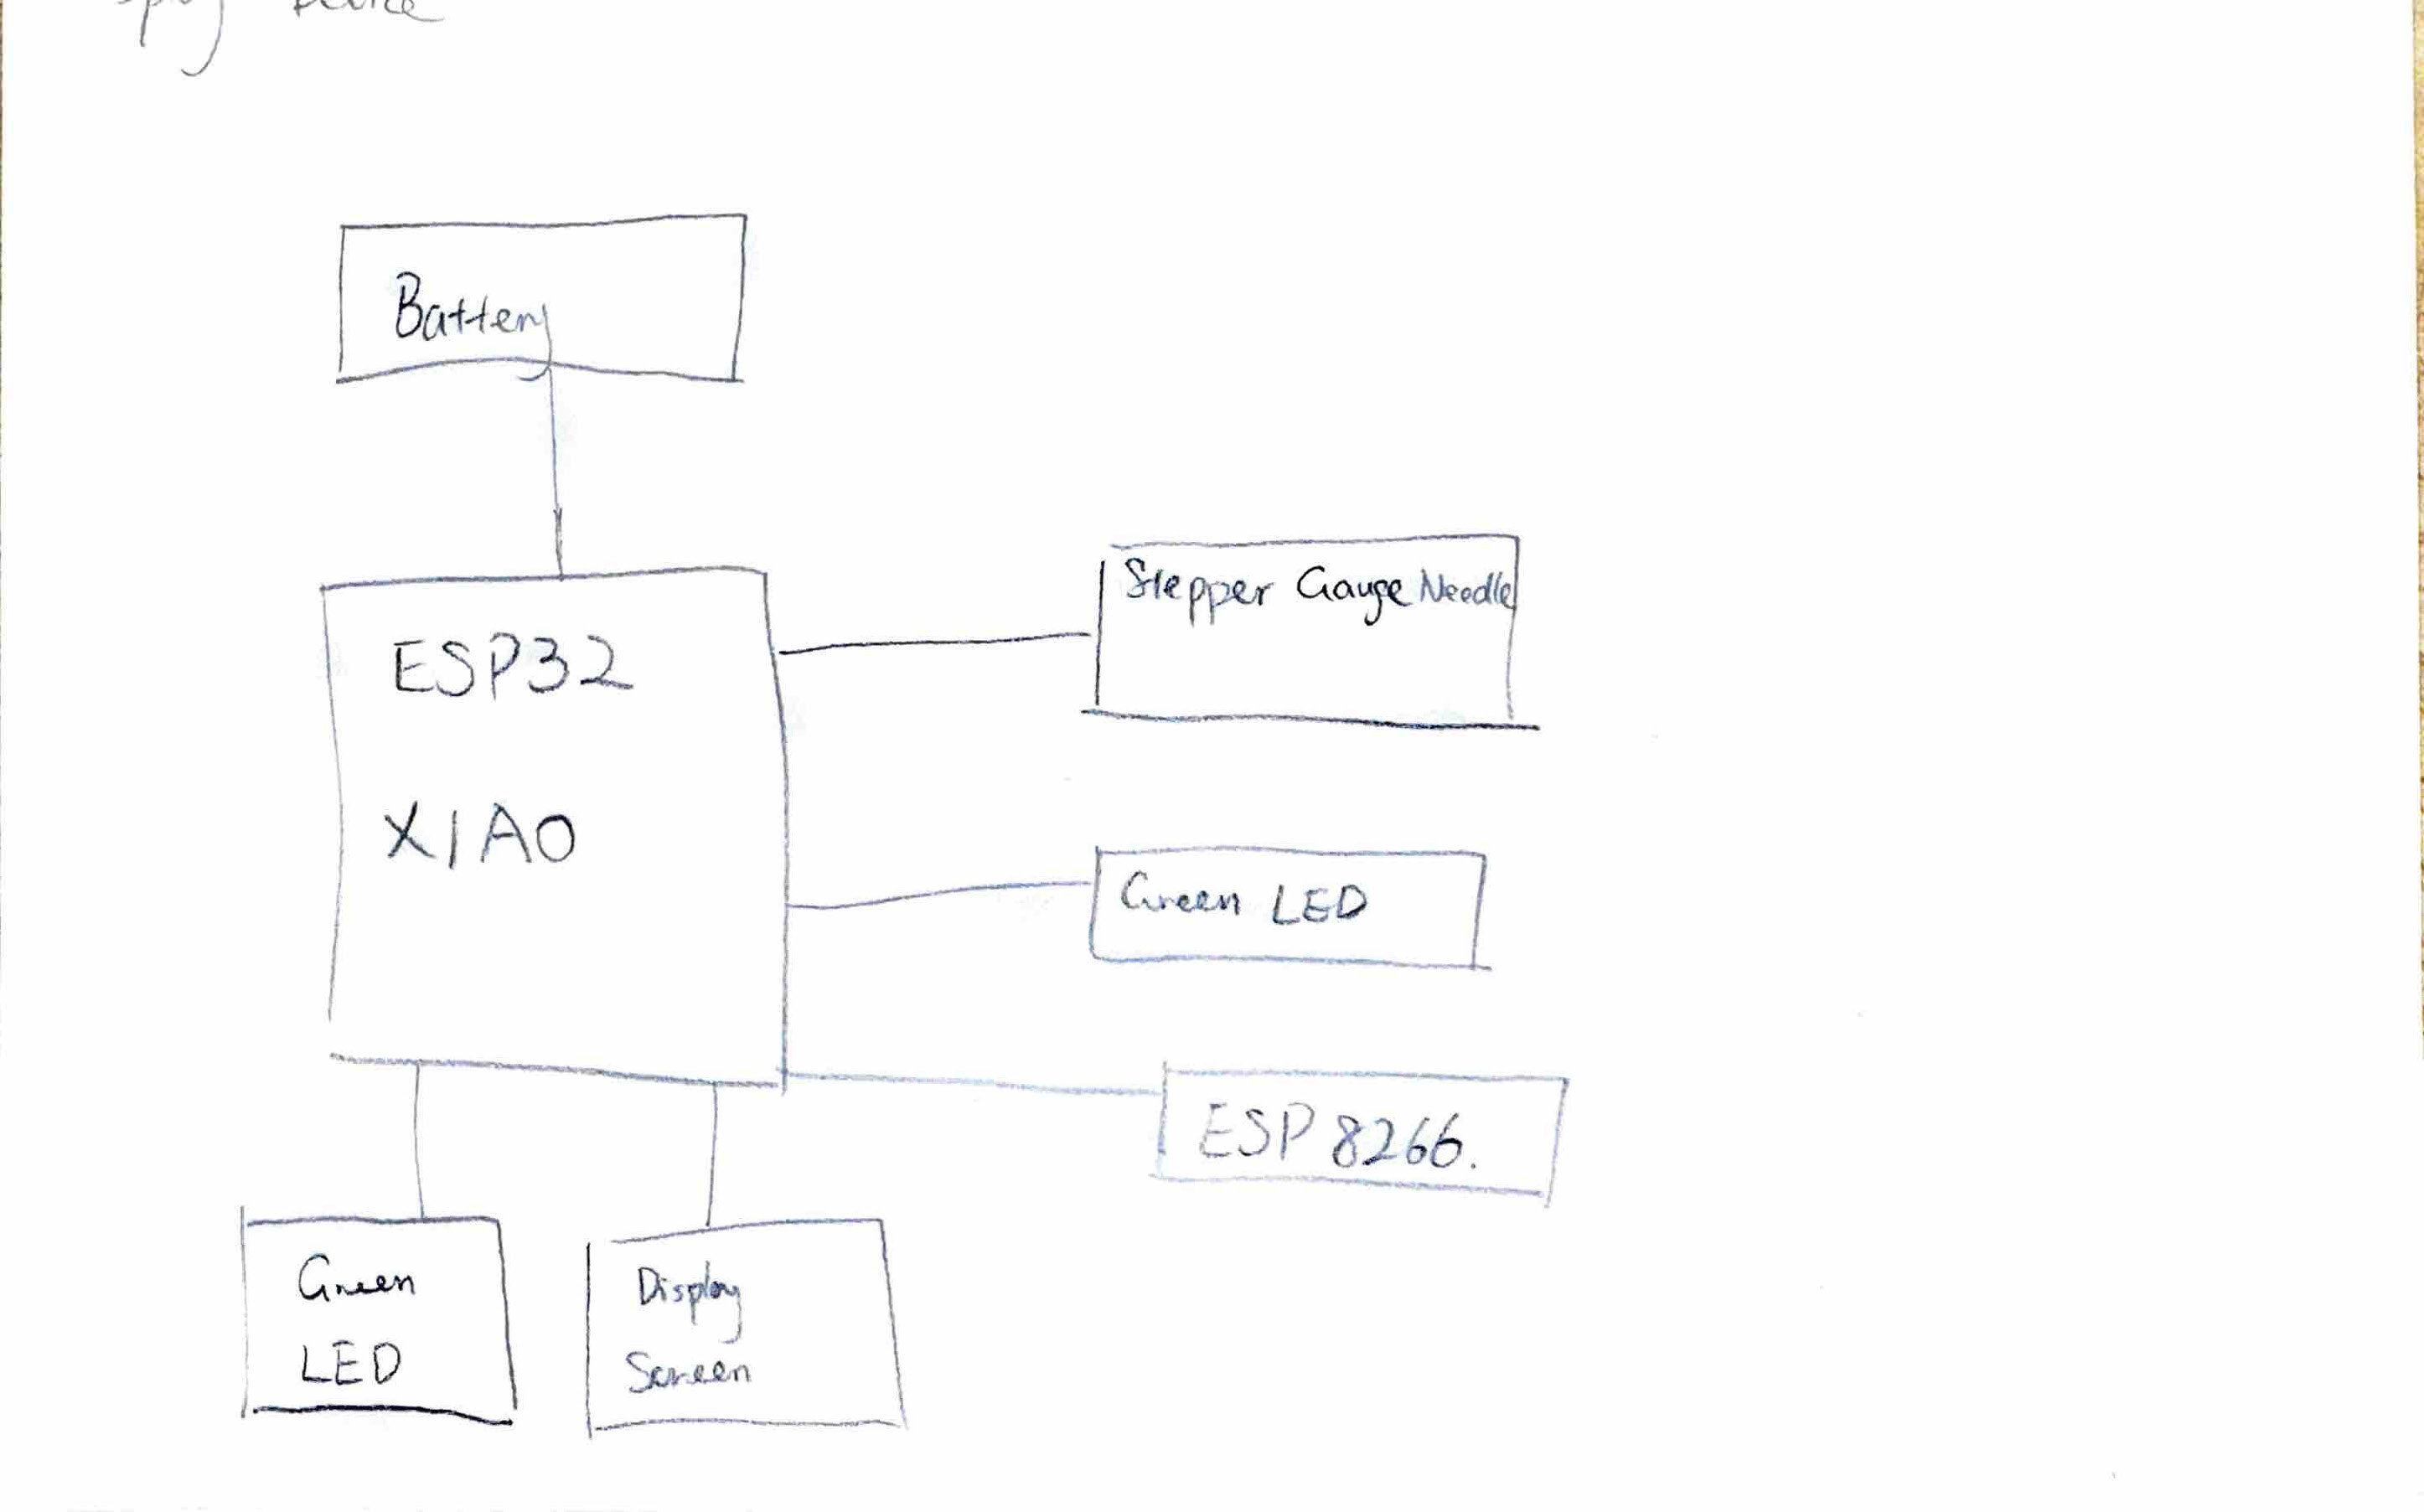 Device
Battery
ESP32
XIAO
Stepper Gauge Needle
Green LED
ESP 8266.
Green
LED
Display
Screen